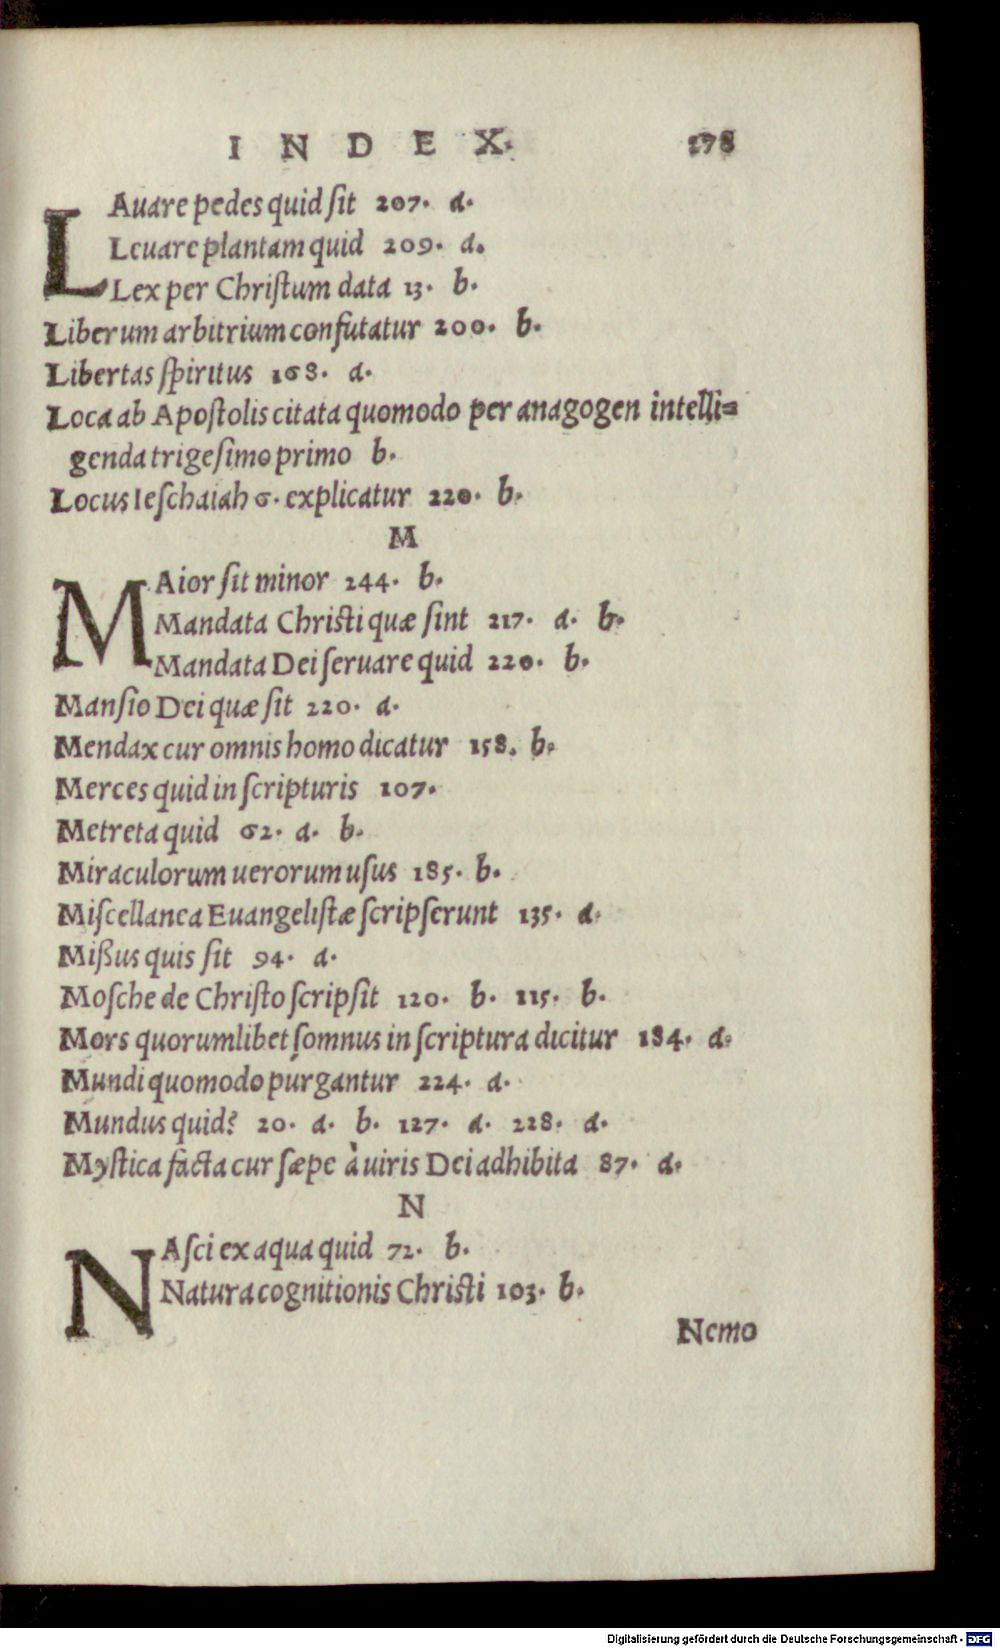 INDEX. 178
LAuare pedes quid ſit 207. a.
Leuare plantam quid 209. a.
Lex per Chriſtum data 13. b.
Liberum arbitrium confutatur 200. b.
Libertas ſpiritus 168. a.
Loca ab Apoſtolis citata quomodo per anagogen intelli=
genda trigeſimo primo b.
Locus Ieſchaiah 6. explicatur 220. b.
M
MAior ſit minor 244. b.
Mandata Chriſti quæ ſint 217. a. b.
Mandata Dei ſeruare quid 220. b.
Manſio Dei quæ ſit 220. a.
Mendax cur omnis homo dicatur 158. b.
Merces quid in ſcripturis 107.
Metreta quid 62. a. b.
Miraculorum uerorum uſus 185. b.
Miſcellanea Euangeliſtæ ſcripſerunt 135. a.
Mißus quis ſit 94. a.
Moſche de Chriſto ſcripſit 120. b. 115. b.
Mors quorumlibet ſomnus in ſcriptura dicitur 184. a.
Mundi quomodo purgantur 224. a.
Mundus quid? 20. a. b. 127. a. 228. a.
Myſtica facta cur ſæpe à uiris Dei adhibita 87. a.
N
NAſci ex aqua quid 72. b.
Natura cognitionis Chriſti 103. b.
Nemo
Digitalisierung gefördert durch die Deutsche Forschungsgemeinschaft - DFG